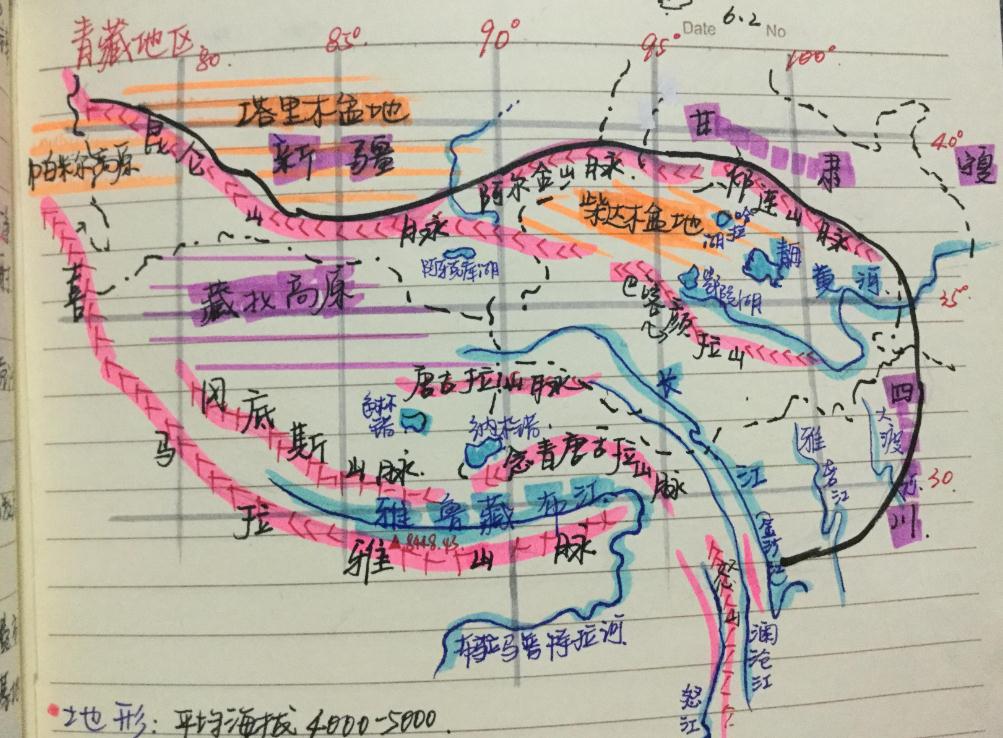 Date 6.2 No
青藏地区
80. 85°. 90° 95° 100°.
塔里木盆地
甘肃
40°
帕米尔高原
昆仑山脉
新疆
宁夏
阿尔金山脉.
祁连山脉
柴达木盆地
哈拉湖
青海
黄河
喜马拉雅山脉
藏北高原
鄂陵湖
巴颜喀拉山
35°
唐古拉山脉
长江
冈底斯山脉.
色林错
纳木错
念青唐古拉山脉
四川.
大渡河
雅砻江
30
雅鲁藏布江
▲8848.43
(金沙江)
怒山
澜沧江
布拉马普特拉河
怒江
地形: 平均海拔 4000-5000